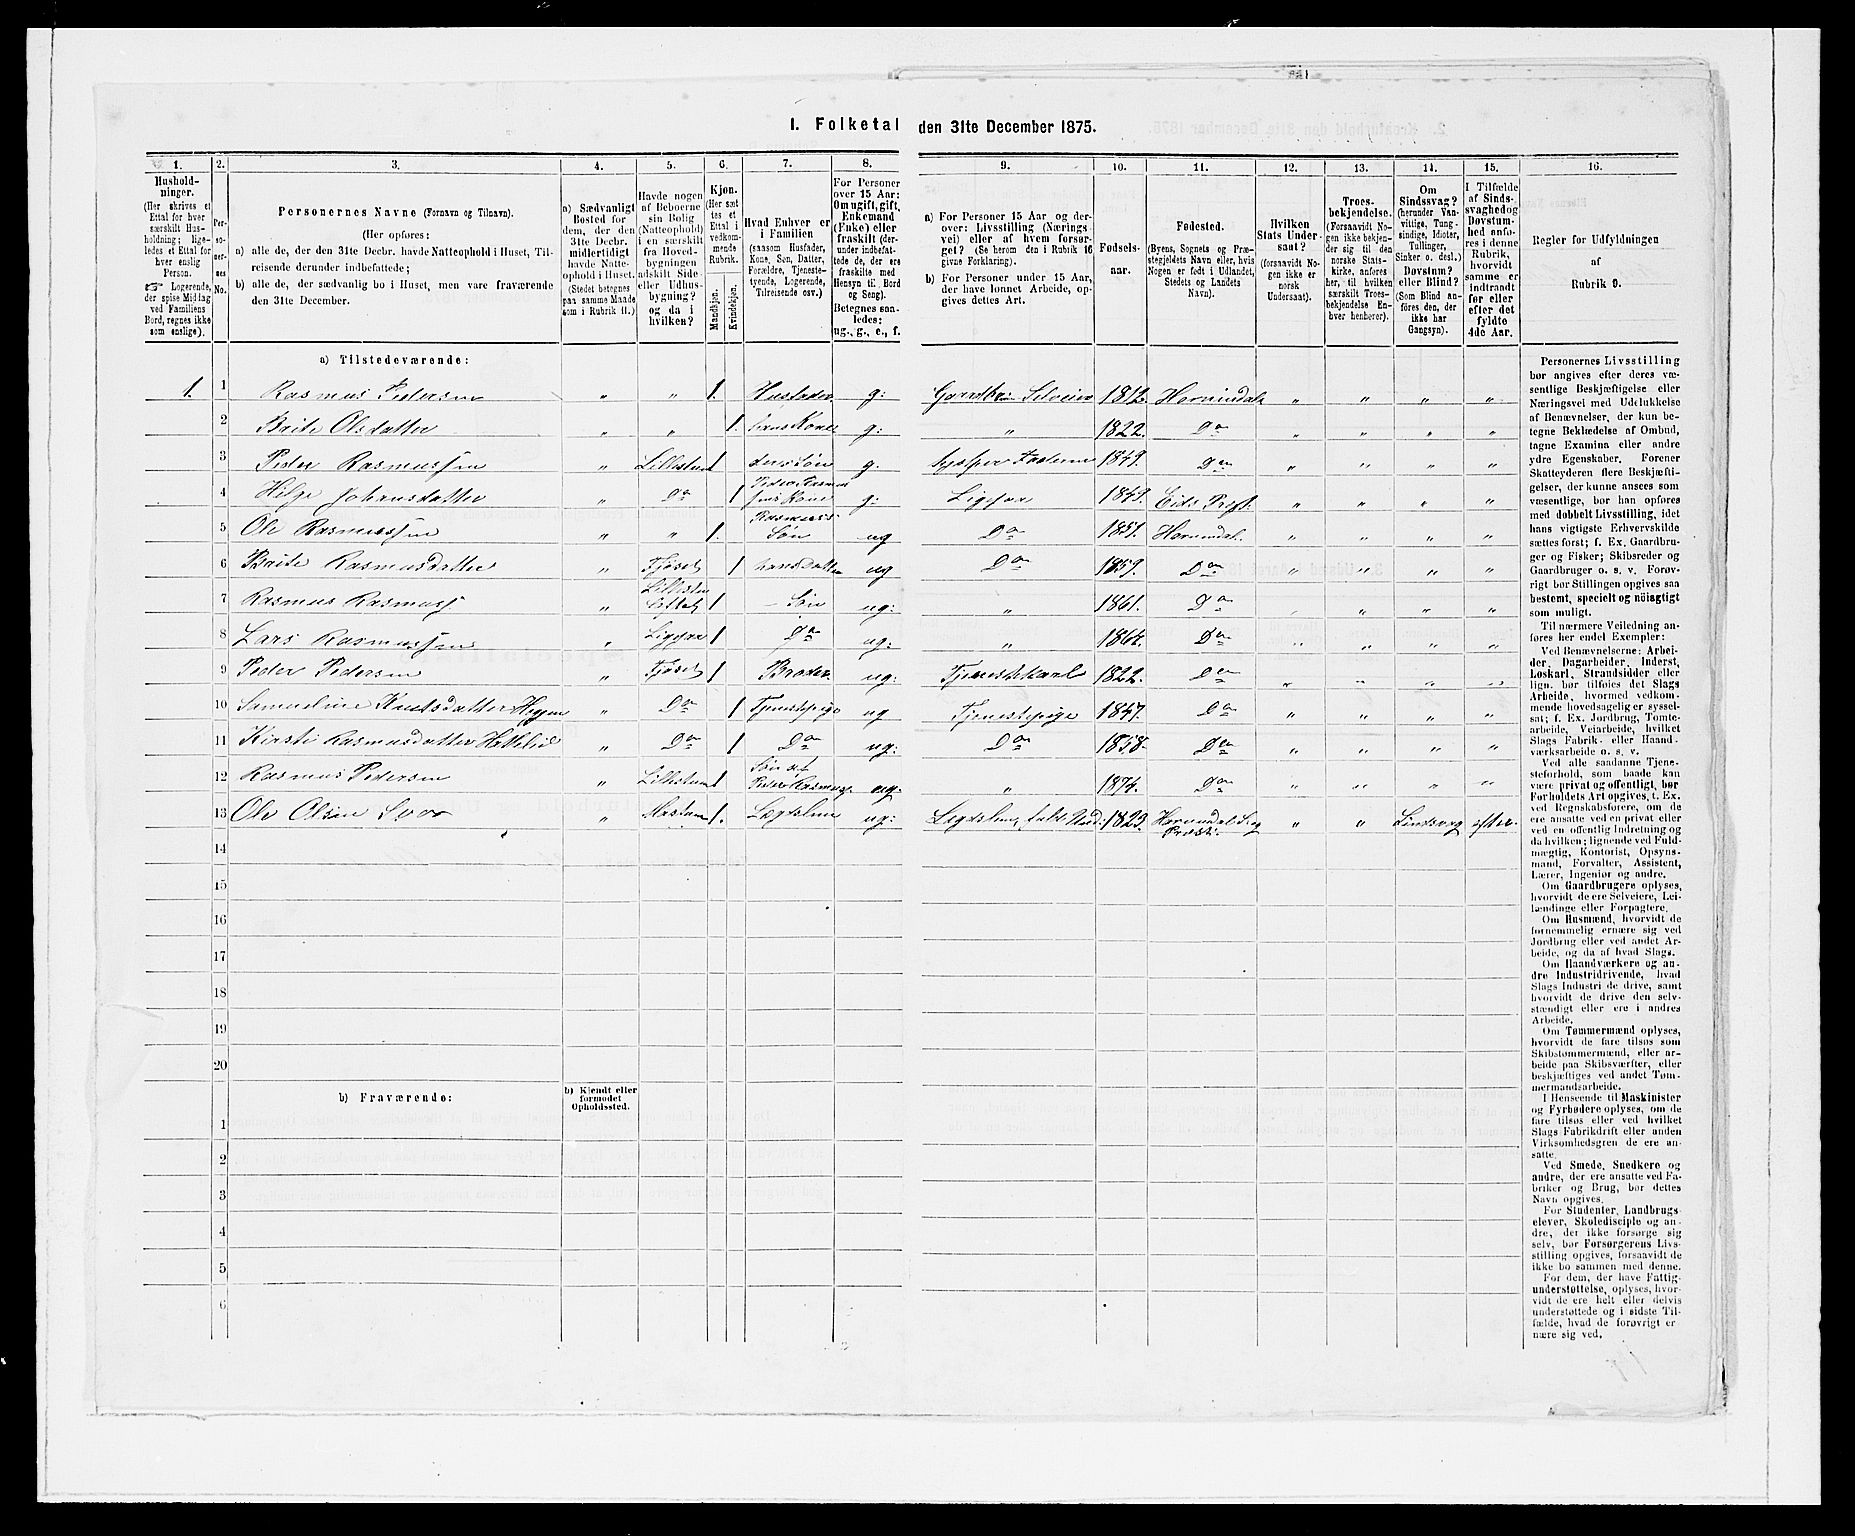 1. Folketal den 31te December 1875.
1. 2. 3. 4. 5. 6. 7. 8. 9. 10. 11. 12. 13. 14. 15. 16.
Hushold-
ninger.
(Her skrives et
Ettal for hver
særskilt Hus-
holdning; lige-
ledes et Ettal for
hver enslig
Person.
Logerende,
der spise Middag
ved Familiens
Bord, regnes ikke
som enslige).
Per-
so-
ner-
nes
No.
Personernes Navne (Fornavn og Tilnavn).
(Her opføres:
a) alle de, der den 31te Decbr. havde Natteophold i Huset, Til-
reisende derunder indbefattede;
b) alle de, der sædvanlig bo i Huset, men vare fraværende
den 31te December.
a) Sædvanligt
Bosted for
dem, der den
31te Decbr.
midlertidigt
havde Natte-
ophold i Huset.
(Stedet betegnes
paa samme Maade
som i Rubrik 11.)
Havde nogen
af Beboerne
sin Bolig
(Natteophold)
i en særskilt
fra Hoved-
bygningen
adskilt Side-
eller Udhus-
bygning?
og da i
hvilken?
Kjøn.
(Her sæt-
tes et
Ettal i
vedkom-
mende
Rubrik.
Mandkjøn.
Kvindekjøn.
Hvad Enhver er
i Familien
(saasom Husfader,
Kone, Søn, Datter,
Forældre, Tjeneste-
tyende, Logerende,
Tilreisende osv.)
For Personer
over 15 Aar:
Om ugift, gift,
Enkemand
(Enke) eller
fraskilt (der-
under indbefat-
tede de, der ere
fraskilte med
Hensyn til Bord
og Seng).
Betegnes saa-
ledes:
ug., g., e., f.
a) For Personer 15 Aar og der-
over: Livsstilling (Nærings-
vei) eller af hvem forsør-
get? (Se herom den i Rubrik 16
givne Forklaring).
b) For Personer under 15 Aar,
der have lønnet Arbeide, op-
gives dettes Art.
Fødsels-
aar.
Fødested.
(Byens, Sognets og Præ-
stegjeldets Navn eller, hvis
Nogen er født i Udlandet,
Stedets og Landets
Navn).
Hvilken
Stats Under-
saat?
(forsaavidt No-
gen ikke er
norsk
Undersaat).
Troes-
bekjendelse.
(Forsaavidt No-
gen ikke bekjen-
der sig til den
norske Stats-
kirke, anføres
her, til hvilken
særskilt Troes-
bekjendelse En-
hver henhører).
Om
Sindssvag?
(herunder Van-
vittige, Tung-
sindige, Idioter,
Tullinger,
Sinker o. desl.)
Døvstum?
eller Blind?
(Som Blind an-
føres den, der
ikke har
Gangsyn).
I Tilfælde
af Sinds-
svaghed og
Døvstum-
hed anfø-
res i denne
Rubrik,
hvorvidt
samme er
indtraadt
før eller
efter det
fyldte
4de Aar.
Regler for Udfyldningen
af
Rubrik 9.
a) Tilstedeværende:
1. 1 Rasmus Pedersen " " 1. Husfader g: Gaardbr: Selveier 1812. Hornindal " " " "
2 Brite Olsdatter " " 1. hans Kone g: " 1822. Do " " " "
3 Peder Rasmussen " Lillestuen 1 deres Søn g. hjelper Faderen 1849. Do " " " "
4 Hilge Johansdatter " Do 1 Peder Rasmus
sens Kone g: Ligesaa 1849. Eids Præst. " " " "
5 Ole Rasmussen " " 1. Rasmus's
Søn ug Do 1851. Hornindal. " " " "
6 Brite Rasmusdatter " Fjøset 1 hans Datter ug Do 1859. Do " " " "
7 Rasmus Rasmuss " Lillestuen 1 Søn ug: " 1861. Do " " "
8 Lars Rasmussen " Ligesaa 1 Do ug: " 1864. Do " " " "
9 Peder Pedersen " Fjøset 1 Broder. ug: Tjenestekarl 1822. Do " " " "
10 Samueline Knutsdatter " Do 1 Tjenestepige ug Tjenestepige 1847. Do " " " "
11 Kirsti Rasmusdatter " Do 1 Do ug: Do 1858. Do " " " "
12 Rasmus Pedersen " Lillestuen 1 Søn af
Peder Rasmuss. ug. " 1874. Do " " " "
13 Ole Olsen " 1. Lægdslem ug: Lægdslem, 1823. Hornindal " " Sindsvag efter.
14
15
16
17
18
19
20
b) Fraværende:
b) Kjendt eller
formodet
Opholdssted.
1
2
3
4
5
6
Personernes Livsstilling
bør angives efter deres væ-
sentlige Beskjæftigelse eller
Næringsvei med Udelukkelse
af Benævnelser, der kun be-
tegne Beklædelse af Ombud,
tagne Examina eller andre
ydre Egenskaber. Forener
Skatteyderen flere Beskjæfti-
gelser, der kunne ansees som
væsentlige, bør han opføres
med dobbelt Livsstilling, idet
hans vigtigste Erhvervskilde
sættes først; f. Ex. Gaardbru-
ger og Fisker; Skibsreder og
Gaardbruger o. s. v. Forøv-
rigt bør Stillingen opgives saa
bestemt, specielt og nøiagtigt
som muligt.
Til nærmere Veiledning an-
føres her endel Exempler:
Ved Benævnelserne: Arbei-
der, Dagarbeider, Inderst,
Løskarl, Strandsidder eller
lign. bør tilføies det Slags
Arbeide, hvormed vedkom-
mende hovedsagelig er syssel-
sat; f. Ex. Jordbrug, Tomte-
arbeide, Veiarbeide, hvilket
Slags Fabrik- eller Haand-
værksarbeide o. s. v.
Ved alle saadanne Tjene-
steforhold, som baade kan
være privat og offentligt, bør
Forholdets Art opgives, t. Ex.
ved Regnskabsførere, om de
ere ansatte ved en privat eller
ved en offentlig Indretning og
da hvilken; lignende ved Fuld-
mægtig, Kontorist, Opsyns-
mand, Forvalter, Assistent,
Lærer, Ingeniør og andre.
Om Gaardbrugere oplyses,
hvorvidt de ere Selveiere, Lei-
lændinge eller Forpagtere.
Om Husmænd, hvorvidt de
fornemmelig ernære sig ved
Jordbrug eller ved andet Ar-
beide, og da af hvad Slags.
Om Haandværkere og an-
dre Industridrivende, hvad
Slags Industri de drive, samt
hvorvidt de drive den selv-
stændigt eller ere i andres
Arbeide.
Om Tømmermænd oplyses,
hvorvidt de fare tilsøs som
Skibstømmermænd, eller ar-
beide paa Skibsværfter, eller
beskjæftiges ved andet Tøm-
mermandsarbeide.
I Henseende til Maskinister
og Fyrbødere oplyses, om de
fare tilsøs eller ved hvilket
Slags Fabrikdrift eller anden
Virksomhedsgren de ere an-
satte.
Ved Smede, Snedkere og
andre, der ere ansatte ved Fa-
briker og Brug, bør dettes
Navn opgives.
For Studenter, Landbrugs-
elever, Skoledisciple og an-
dre, der ikke forsørge sig
selv, bør Forsørgerens Livs-
stilling opgives, forsaavidt de
ikke bo sammen med denne.
For dem, der have Fattig-
understøttelse, oplyses, hvor-
vidt de ere helt eller delvis
understøttede og i sidste Til-
fælde, hvad de forøvrigt er-
nære sig ved.